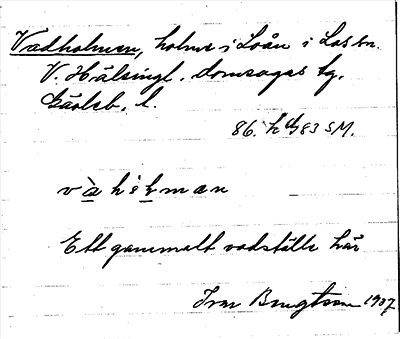 Vadholmen, holme i Loån i Los sn.
V. Hälsingl. domsagas tg.
Gävleb. l.
86. h 83 SM.
Ett gammalt vadställe här
Ivar Bengtsson 1937